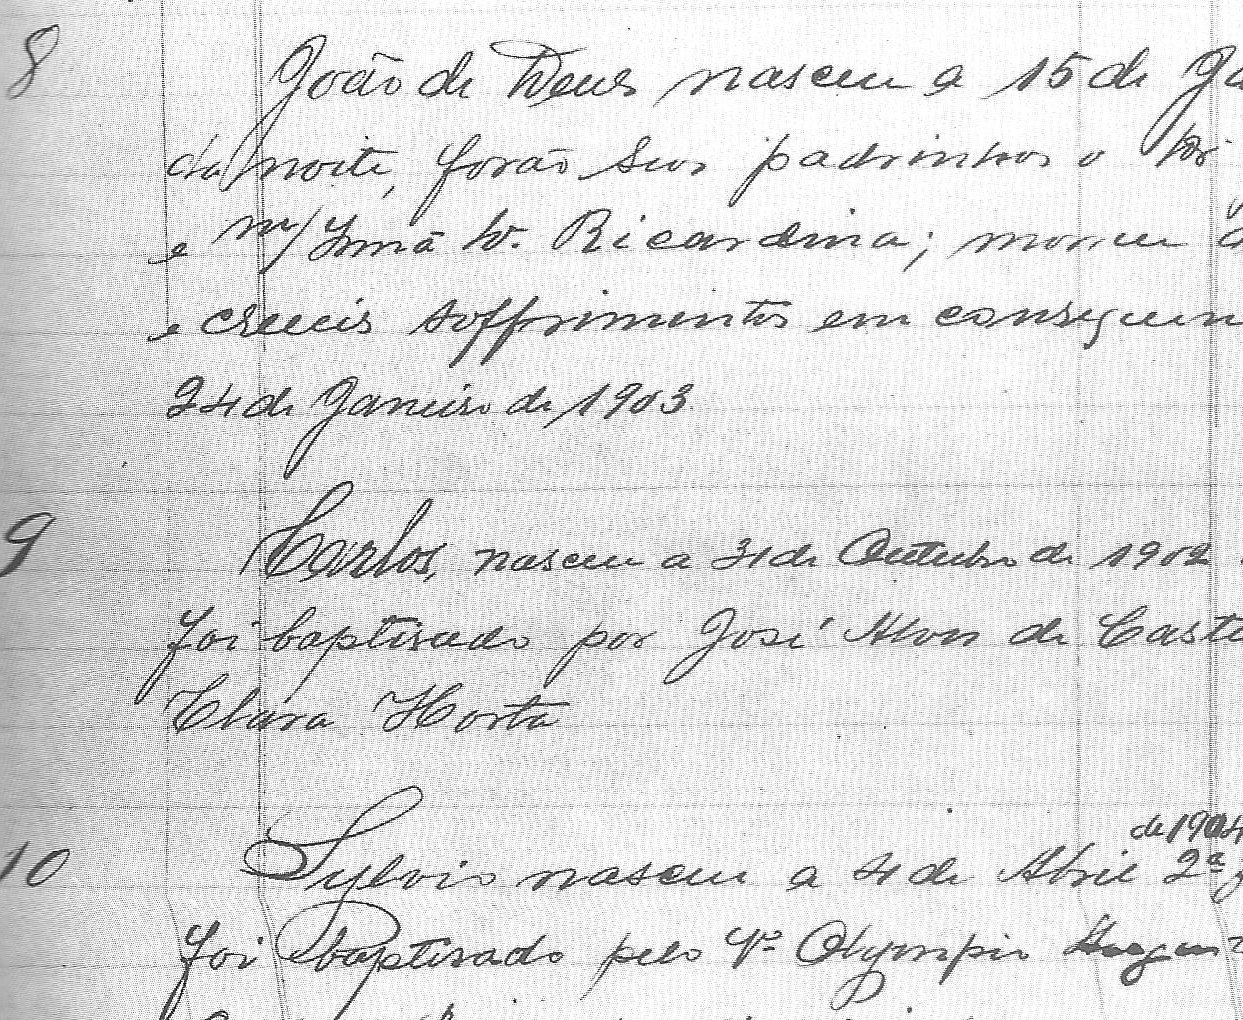 8 João de Deus nasceu a 15 de Ja
da noite, forão seus padrinhos o
e m/ Irmã D. Ricardina; morreu
e crueis soffrimentos em consequen
24 de Janeiro de 1903
9 Carlos, nasceu a 31 de Outubro de 1902
foi baptisado por José Alves de Cast
Clara Horta
de 1904
10 Sylvio nasceu a 4 de Abril 2ª f
foi baptisado pelo Olympio